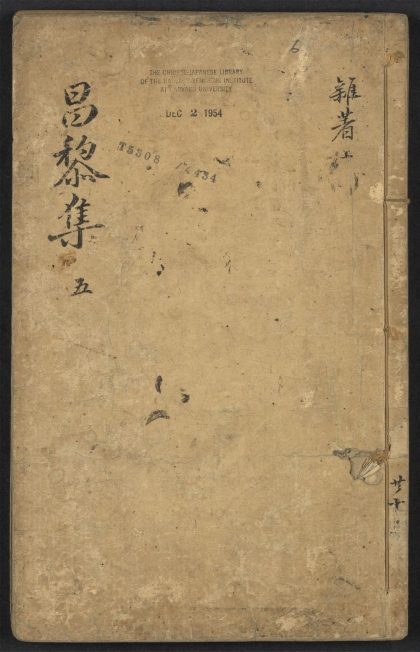 6
雜著上
THE CHINESE-JAPANESE LIBRARY
OF THE HARVARD-YENCHING INSTITUTE
AT HARVARD UNIVERSITY
DEC 2 1954
T5308
昌黎集
五